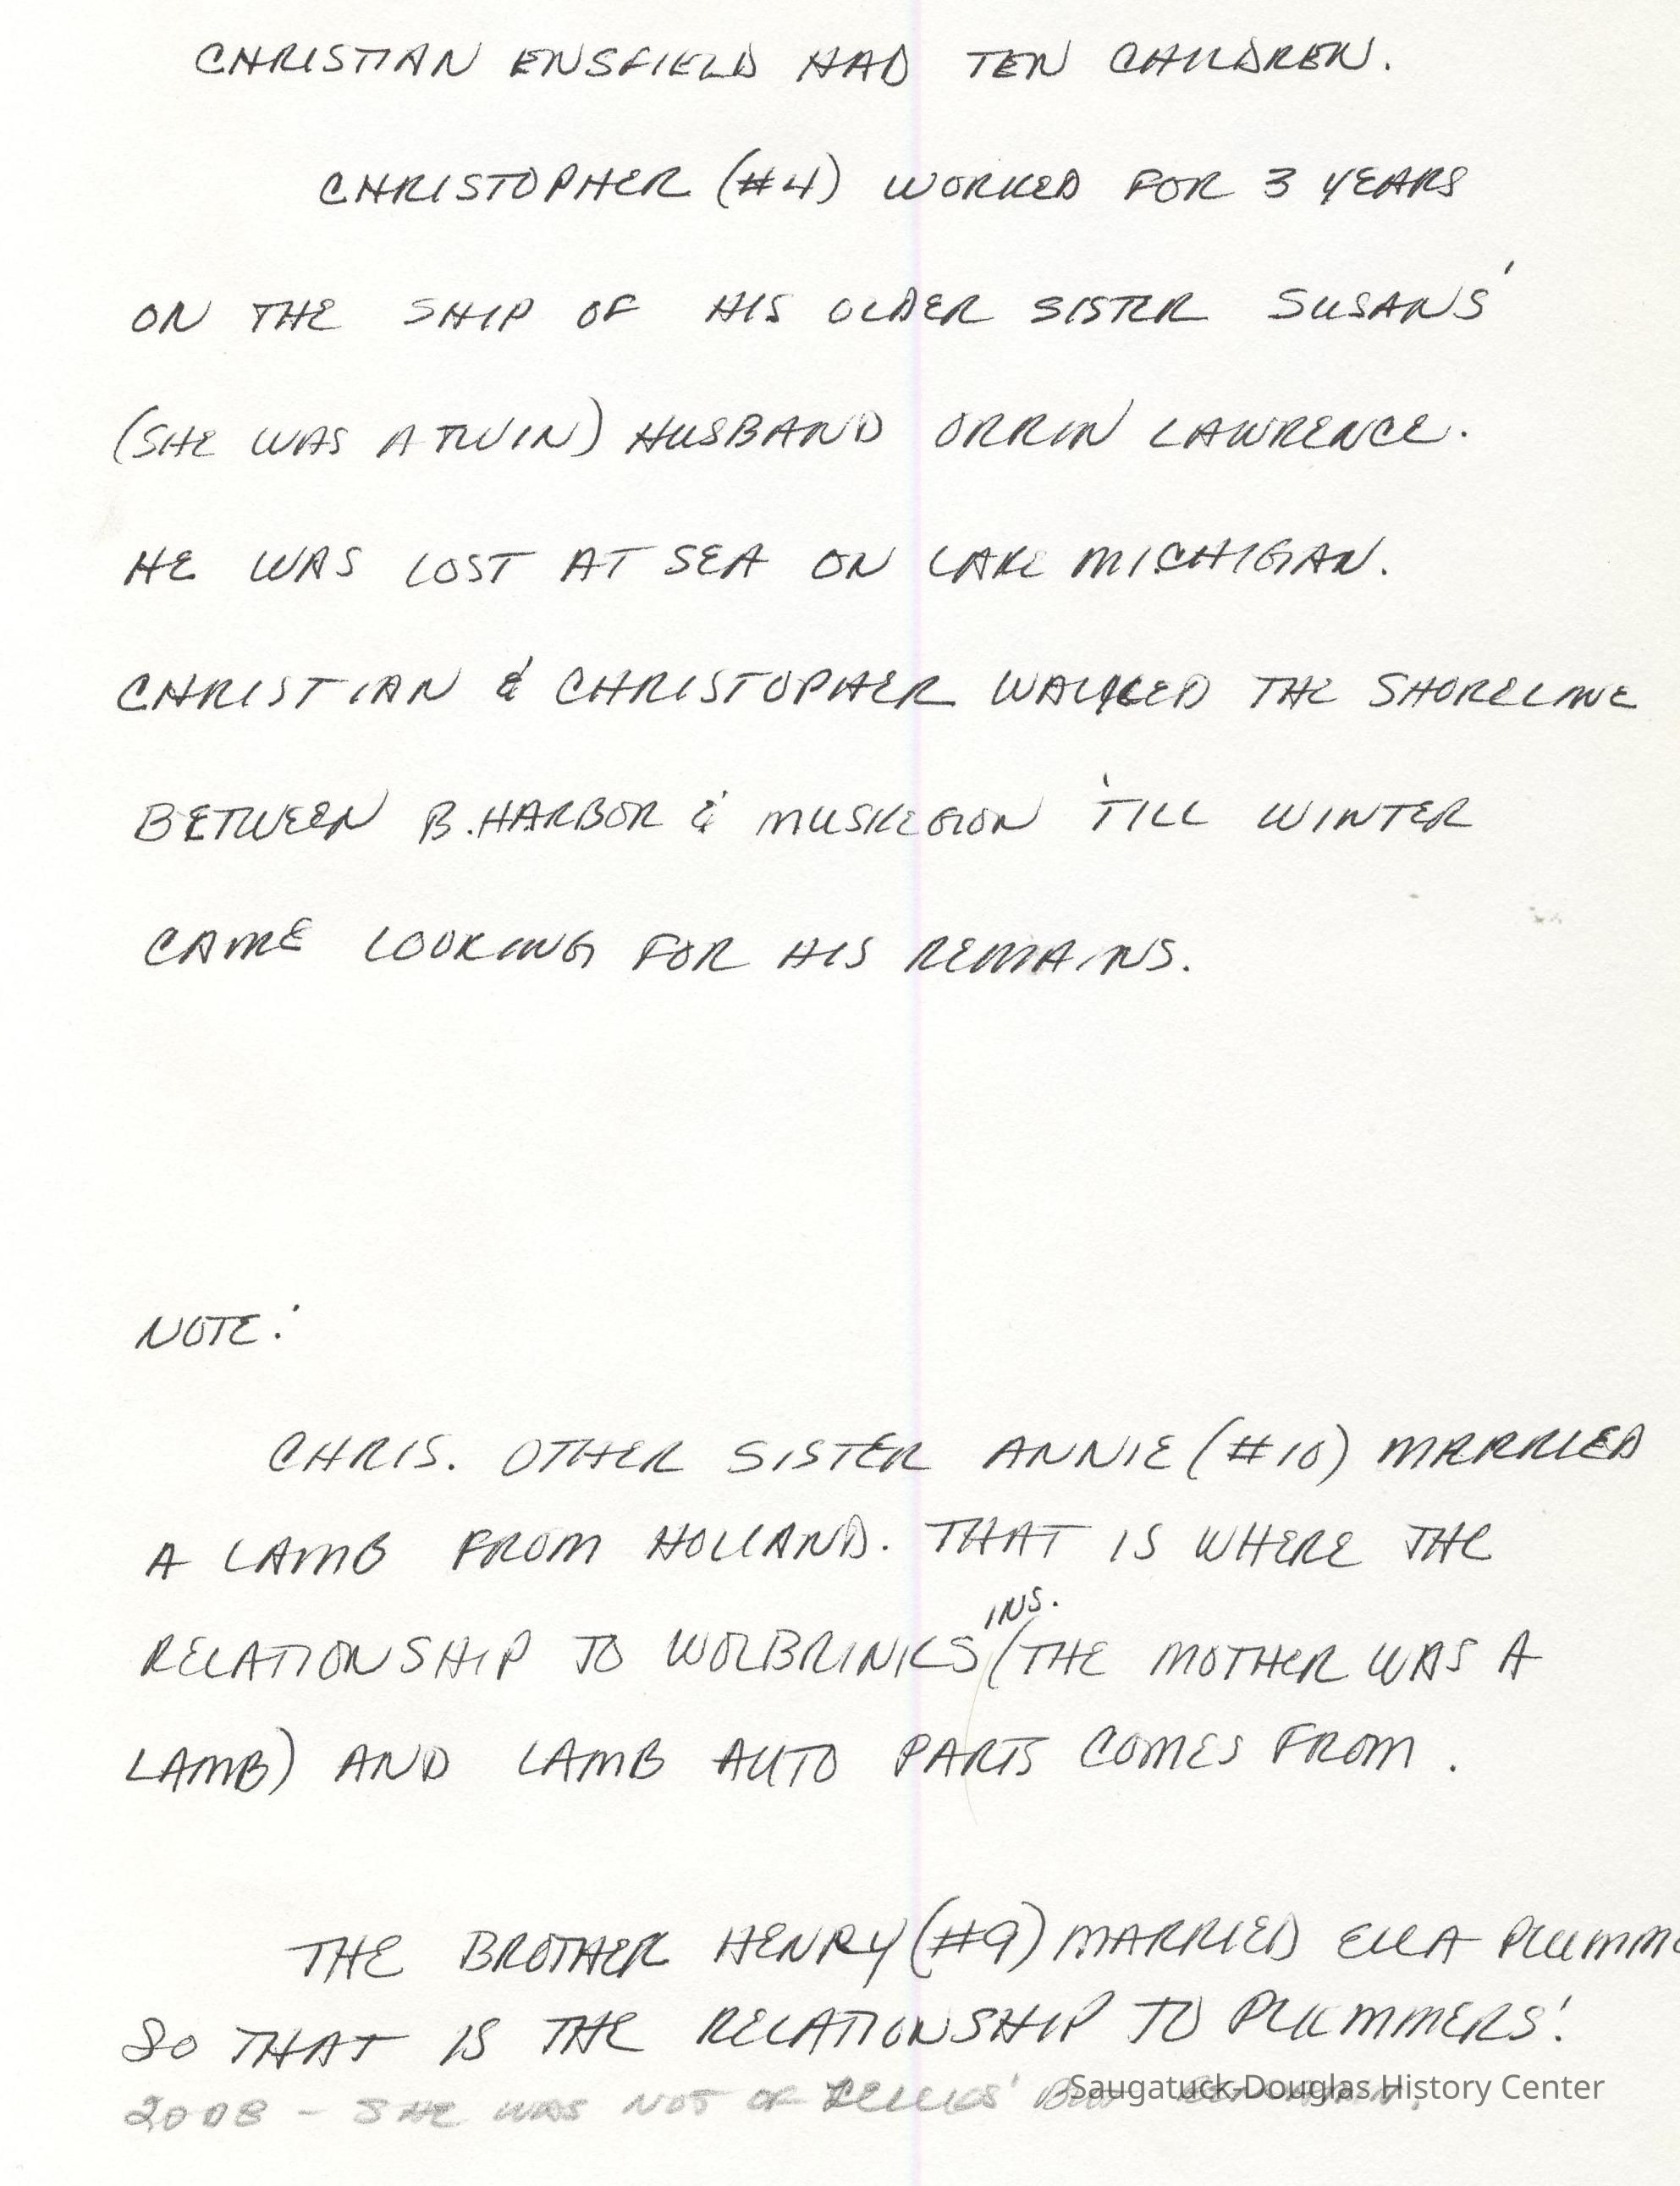 CHRISTIAN ENSFIELD HAD TEN CHILDREN.
CHRISTOPHER (#4) WORKED FOR 3 YEARS
ON THE SHIP OF HIS OLDER SISTER SUSANS'
(SHE WAS A TWIN) HUSBAND ORRIN LAWRENCE.
HE WAS LOST AT SEA ON LAKE MICHIGAN.
CHRISTIAN & CHRISTOPHER WALKED THE SHORELINE
BETWEEN B. HARBOR & MUSKEGON 'TILL WINTER
CAME LOOKING FOR HIS REMAINS.
NOTE:
CHRIS. OTHER SISTER ANNIE (#10) MARRIED
A LAMB FROM HOLLAND. THAT IS WHERE THE
INS.
RELATIONSHIP TO WOLBRINKS (THE MOTHER WAS A
LAMB) AND LAMB AUTO PARTS COMES FROM.
THE BROTHER HENRY (#9) MARRIED ELLA PLUMME
SO THAT IS THE RELATIONSHIP TO PLUMMERS!
2008 - SHE WAS NOT OF
Saugatuck-Douglas History Center